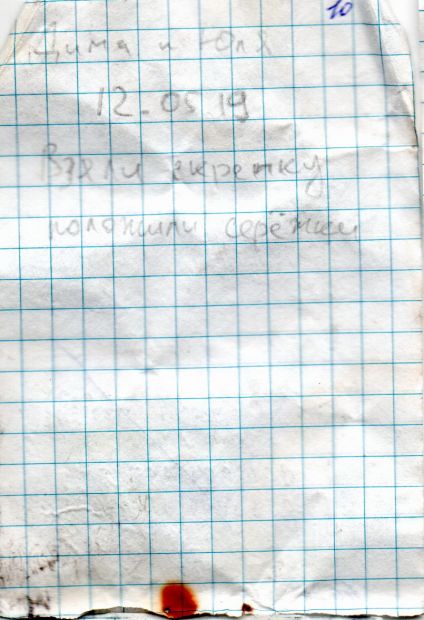 10
Дима и Юля
12.05.19
Взяли скрепку
положили серёжки